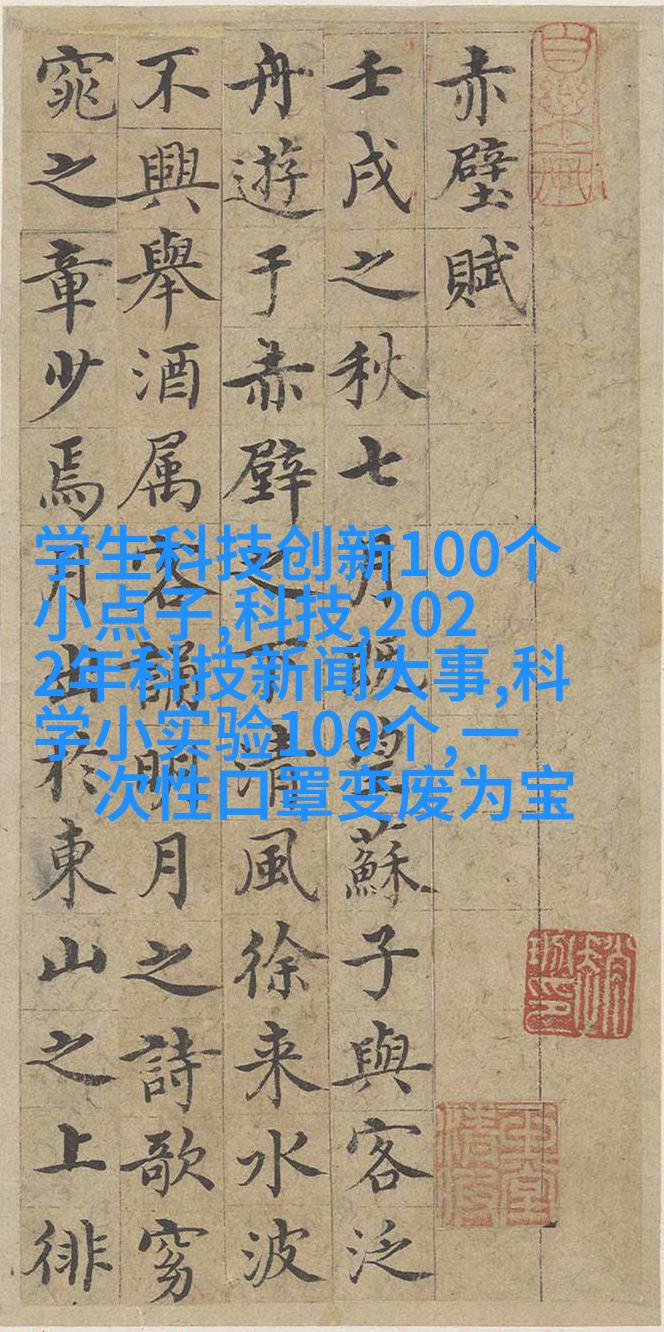 赤壁賦
壬戌之秋七月既望蘇子與客泛
舟遊于赤壁之下清風徐来水波
不興舉酒属客誦明月之詩歌窈
窕之章少焉月出於東山之上徘
学生科技创新100个
小点子,科技,202
2年科技新闻大事,科
学小实验100个,一
次性口罩变废为宝